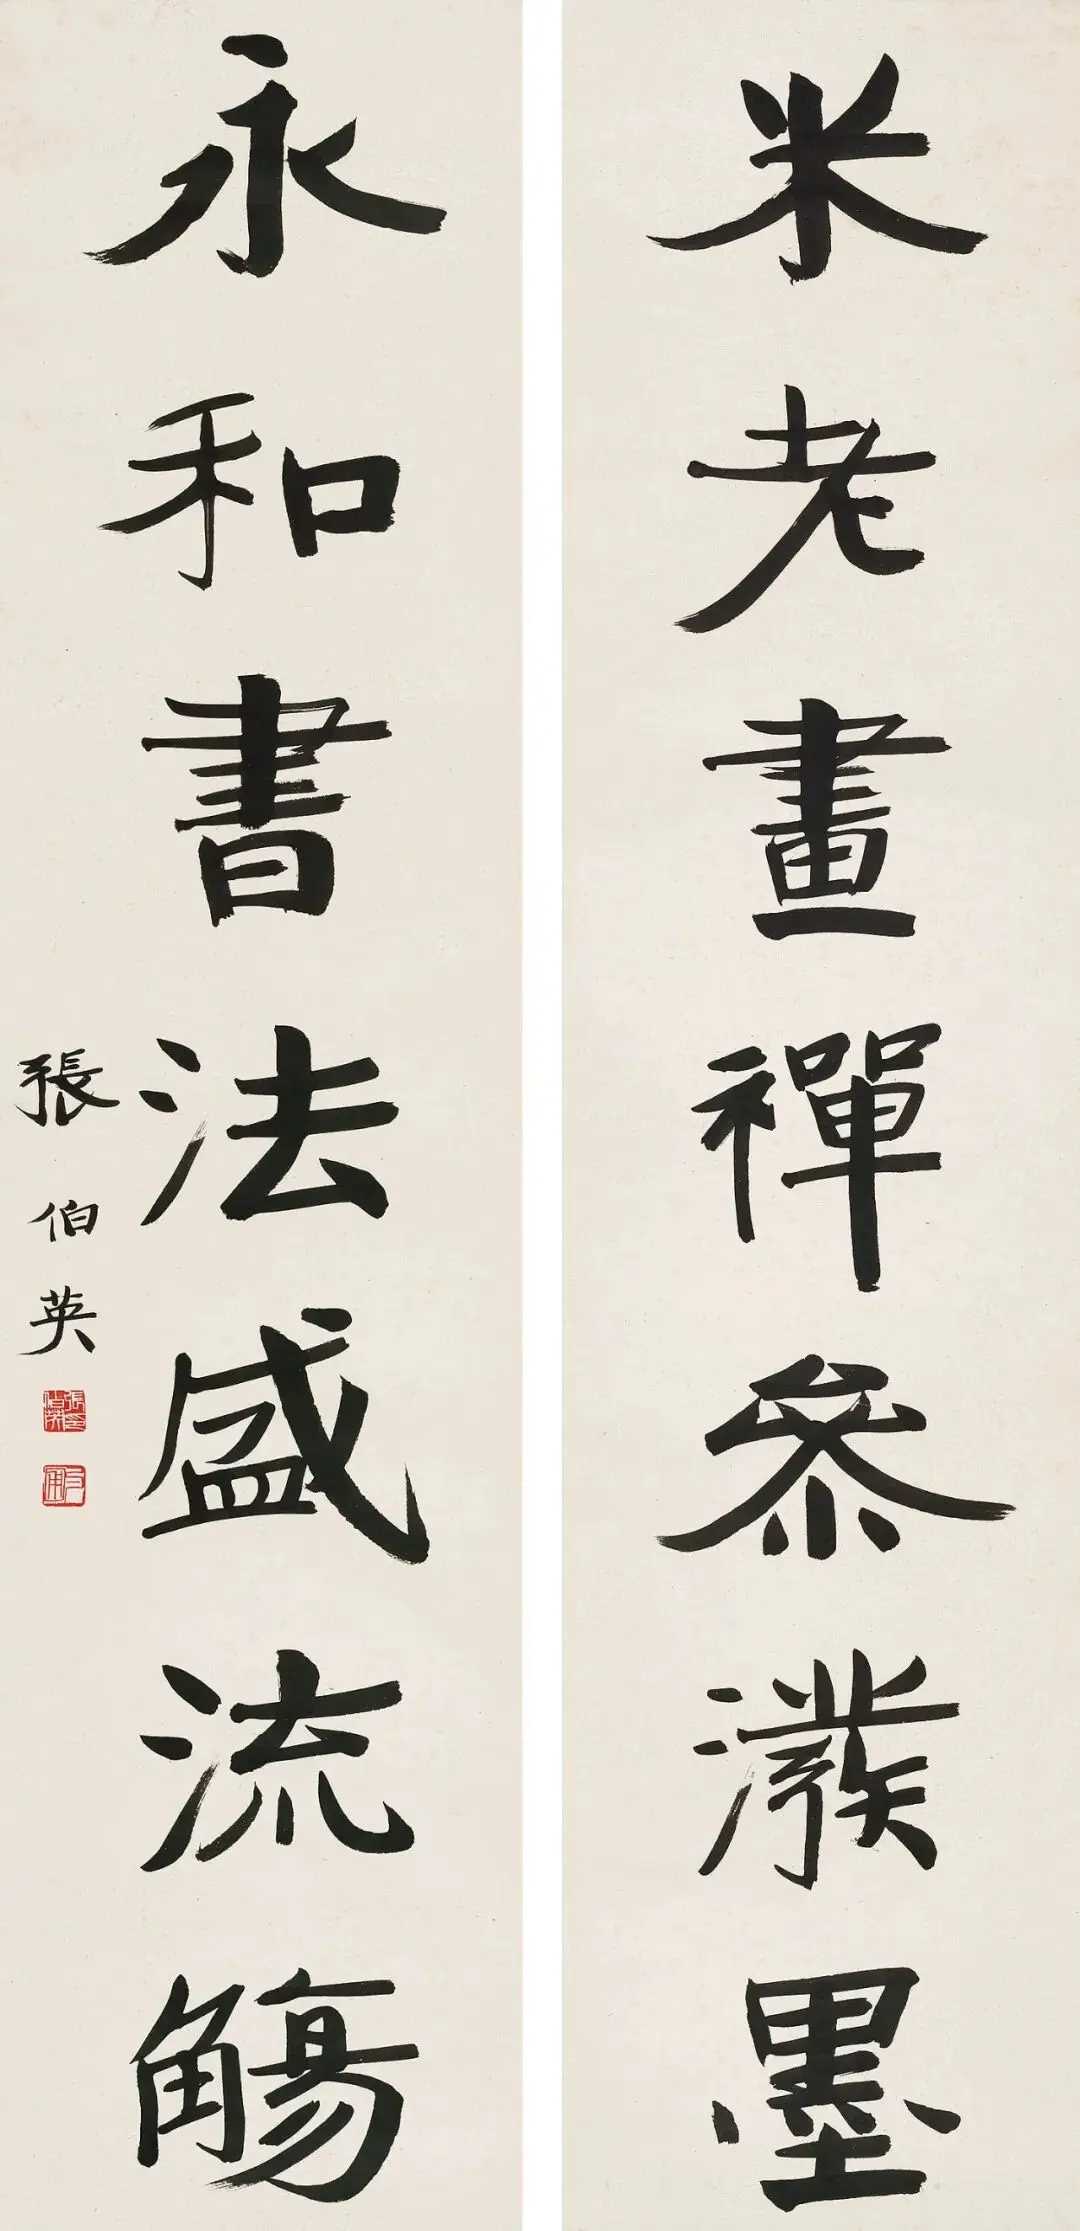 米老畫禪參潑墨
永和書法盛流觴
張伯英